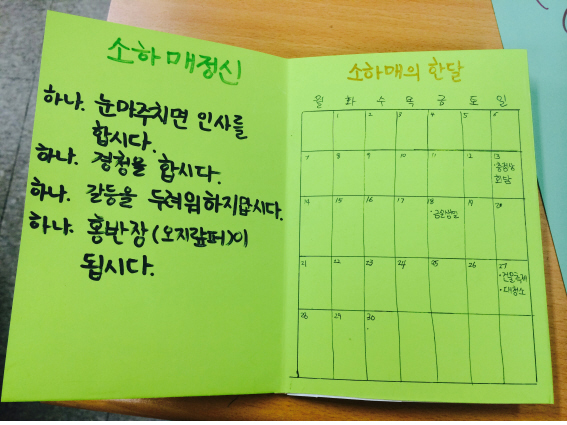 소하매정신
하나. 눈마주치면 인사를
합시다.
하나. 경청을 합시다.
하나. 갈등을 두려워하지맙시다.
하나. 홍반장(오지랖퍼)이
됩시다.
소하매의 한달
월 화 수 목 금 토 일
1 2 3 4 5 6
7 8 9 10 11 12 13
회담
14 15 16 17 18 19 20
21 22 23 24 25 26 27
·건물축제
·대청소
28 29 30